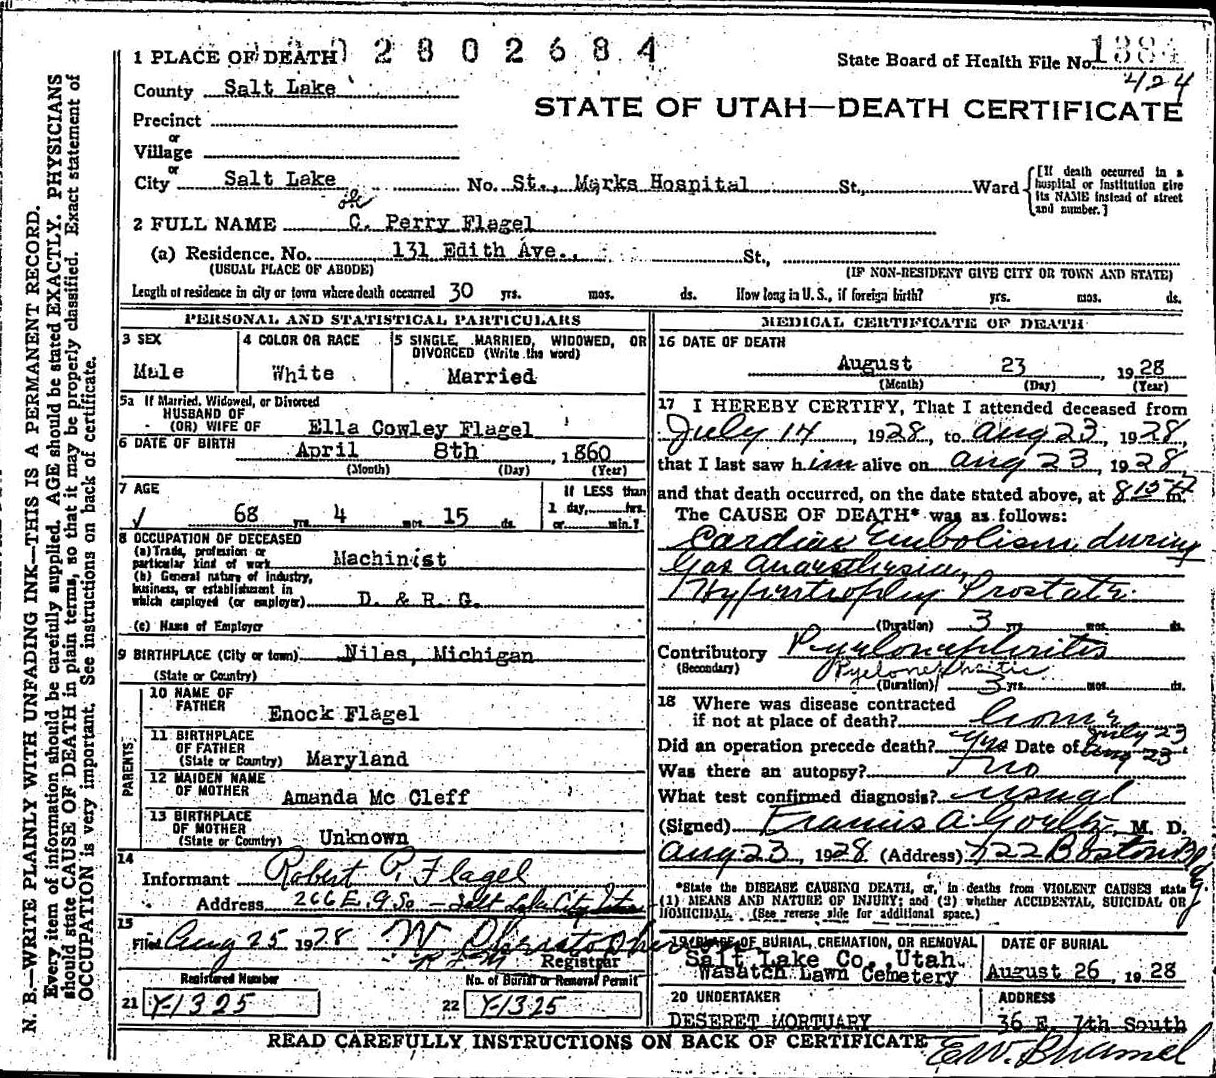 2802684
1 PLACE OF DEATH
State Board of Health File No. 1384
424
County Salt Lake
STATE OF UTAH—DEATH CERTIFICATE
Precinct
or
Village
or
City Salt Lake No. St., Marks Hospital St., Ward
[If death occurred in a hospital or institution give its NAME instead of street and number.]
2 FULL NAME C. Perry Flagel
(a) Residence. No. 131 Edith Ave., St.,
(USUAL PLACE OF ABODE) (IF NON-RESIDENT GIVE CITY OR TOWN AND STATE)
Length of residence in city or town where death occurred 30 yrs. mos. ds. How long in U. S., if foreign birth? yrs. mos. ds.
PERSONAL AND STATISTICAL PARTICULARS
3 SEX
Male
4 COLOR OR RACE
White
5 SINGLE, MARRIED, WIDOWED, OR DIVORCED (Write the word)
Married
5a If Married, Widowed, or Divorced
HUSBAND OF
(OR) WIFE OF Ella Cowley Flagel
6 DATE OF BIRTH April 8th, 1860
(Month) (Day) (Year)
7 AGE
√ 68 yrs. 4 mos. 15 ds.
If LESS than
1 day, hrs.
or min.?
8 OCCUPATION OF DECEASED
(a) Trade, profession or
particular kind of work Machinist
(b) General nature of industry,
business, or establishment in
which employed (or employer) D. & R. G.
(c) Name of Employer
9 BIRTHPLACE (City or town) Niles, Michigan
(State or Country)
PARENTS
10 NAME OF
FATHER
Enock Flagel
11 BIRTHPLACE
OF FATHER
(State or Country) Maryland
12 MAIDEN NAME
OF MOTHER
Amanda Mc Cleff
13 BIRTHPLACE
OF MOTHER
(State or Country) Unknown
14
Informant Robert P. Flagel
Address 266 E. 9 So - Salt Lake City Utah
15
Filed Aug 25 1928
Registrar
Registered Number
21 Y-1325
No. of Burial or Removal Permit
22 Y-1325
MEDICAL CERTIFICATE OF DEATH
16 DATE OF DEATH
August 23, 1928
(Month) (Day) (Year)
17 I HEREBY CERTIFY, That I attended deceased from
July 14, 1928, to Aug 23, 1928,
that I last saw him alive on Aug 23, 1928,
and that death occurred, on the date stated above, at 8 15 m.
The CAUSE OF DEATH* was as follows:
Cardiac Embolism during
Gas Anaesthesia,
Hypertrophy Prostate.
(Duration) 3 yrs. mos. ds.
Contributory Pyelonephritis
(Secondary) Pyelonephritis
(Duration) 3 yrs. mos. ds.
18 Where was disease contracted
if not at place of death? home
July 23
Did an operation precede death? Yes Date of Aug 23
Was there an autopsy? no
What test confirmed diagnosis? usual
(Signed) Francis A. M. D.
Aug 23, 1928 (Address) 722 Boston Bldg.
*State the DISEASE CAUSING DEATH, or, in deaths from VIOLENT CAUSES state
(1) MEANS AND NATURE OF INJURY; and (2) whether ACCIDENTAL, SUICIDAL OR
HOMICIDAL. (See reverse side for additional space.)
19 PLACE OF BURIAL, CREMATION, OR REMOVAL
Salt Lake Co., Utah.
Wasatch Lawn Cemetery
DATE OF BURIAL
August 26, 1928
20 UNDERTAKER
DESERET MORTUARY
ADDRESS
36 E. 7th South
READ CAREFULLY INSTRUCTIONS ON BACK OF CERTIFICATE
N. B.—WRITE PLAINLY WITH UNFADING INK—THIS IS A PERMANENT RECORD.
Every item of information should be carefully supplied. AGE should be stated EXACTLY. PHYSICIANS
should state CAUSE OF DEATH in plain terms, so that it may be properly classified. Exact statement of
OCCUPATION is very important. See instructions on back of certificate.